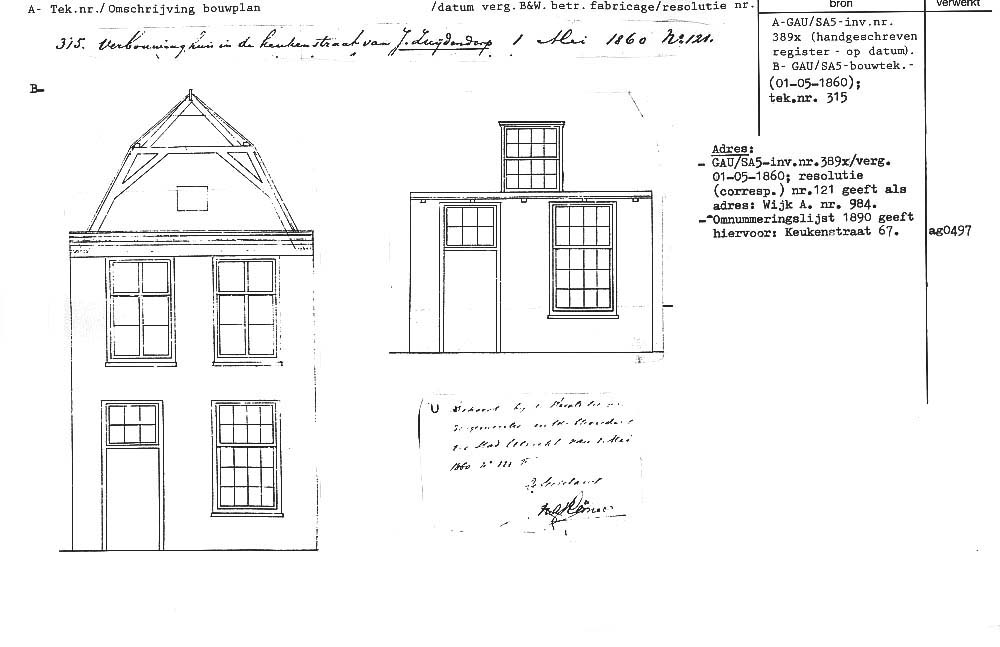 A- Tek.nr./ Omschrijving bouwplan /datum verg. B&W. betr. fabricage/resolutie nr. bron verwerkt
315. Verbouwing huis in de keukenstraat van J. Zuijdendorp 1 Mei 1860 No. 121.
A-GAU/SA5-inv.nr.
389x (handgeschreven
register - op datum).
B- GAU/SA5-bouwtek.-
(01-05-1860);
tek.nr. 315
B-
Adres:
- GAU/SA5-inv.nr.389x/verg.
01-05-1860; resolutie
(corresp.) nr.121 geeft als
adres: Wijk A. nr. 984.
- Omnummeringslijst 1890 geeft
hiervoor: Keukenstraat 67. ag0497
Behoort bij
van 1 Mei
1860 No 121